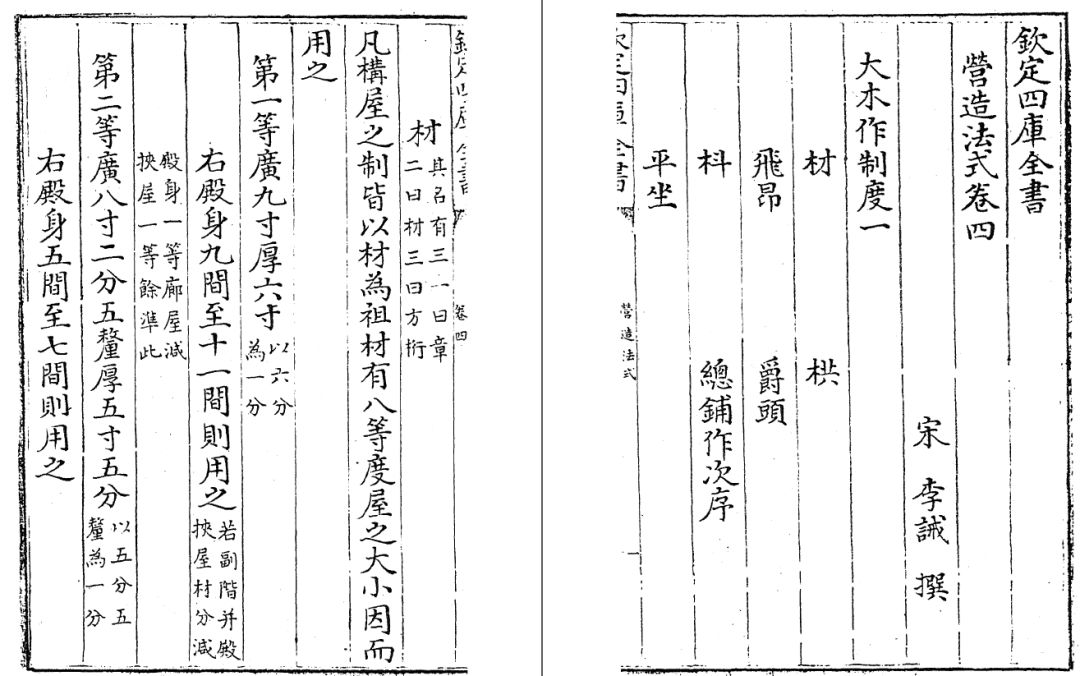 欽定四庫全書
營造法式卷四
宋 李誡 撰
大木作制度一
材 栱
飛昂 爵頭
枓 總鋪作次序
平坐
欽定四庫全書
營造法式
欽定四庫全書
卷四
材 其名有三一曰章
二曰材三曰方桁
凡構屋之制皆以材為祖材有八等度屋之大小因而
用之
第一等廣九寸厚六寸 以六分
為一分
右殿身九間至十一間則用之 若副階并殿
挾屋材分減
殿身一等廊屋減
挾屋一等餘準此
第二等廣八寸二分五釐厚五寸五分 以五分五
釐為一分
右殿身五間至七間則用之